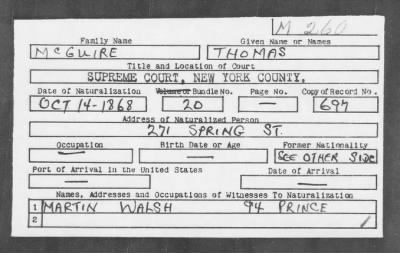 M 260
Family Name Given Name or Names
McGUIRE THOMAS
Title and Location of Court
SUPREME COURT, NEW YORK COUNTY.
Date of Naturalization Volume or Bundle No. Page No. Copy of Record No.
OCT 14-1868 20 — 697
Address of Naturalized Person
271 SPRING ST.
Occupation Birth Date or Age Former Nationality
— — SEE OTHER SIDE
Port of Arrival in the United States Date of Arrival
— —
Names, Addresses and Occupations of Witnesses To Naturalization
1 MARTIN WALSH 94 PRINCE
2